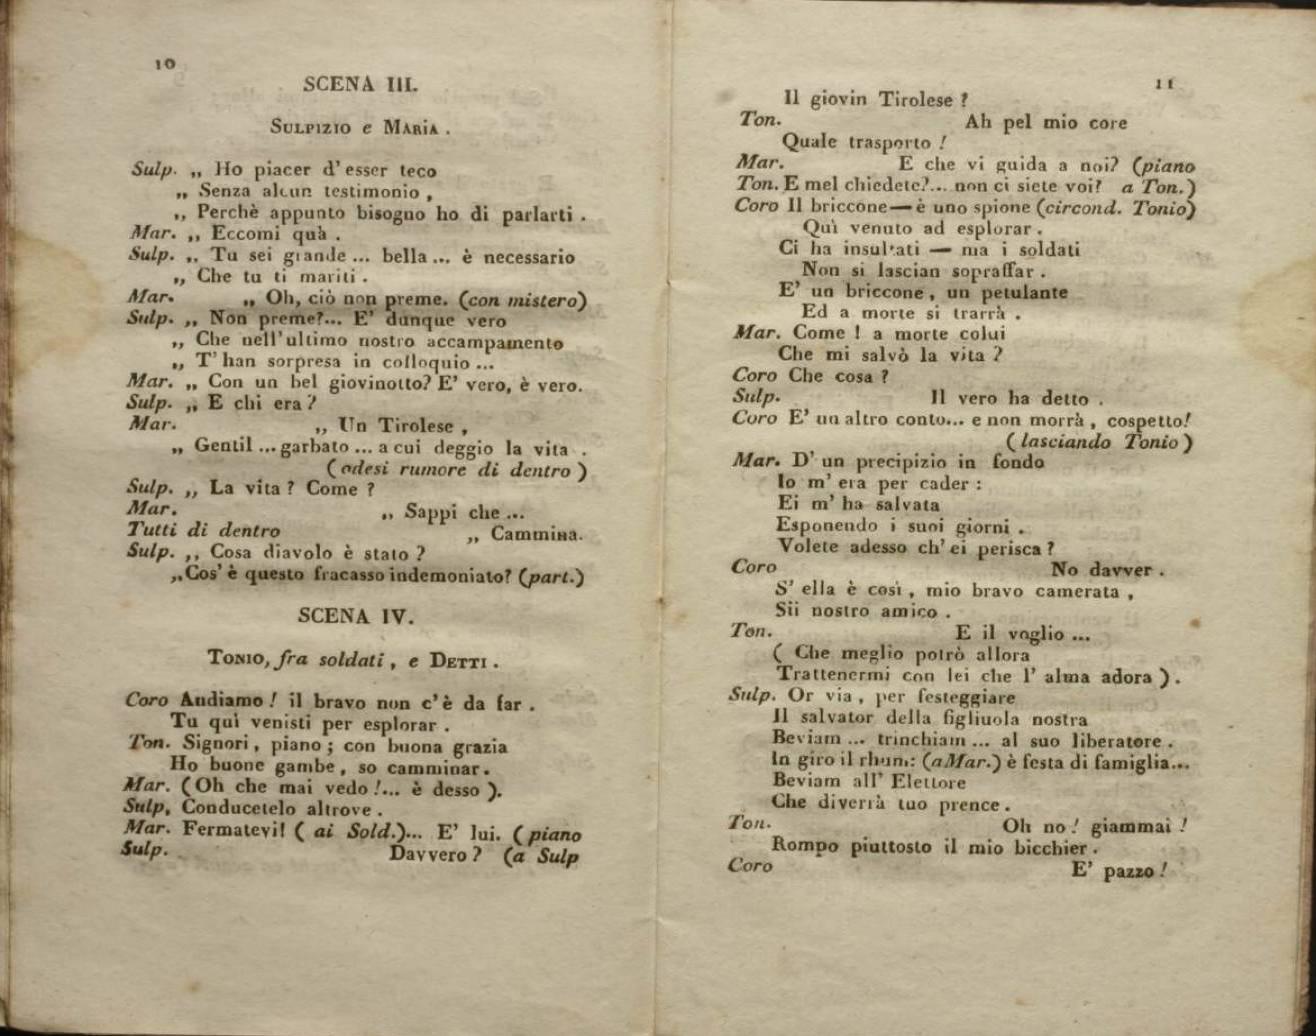 10
SCENA III.
SULPIZIO e MARIA .
Sulp. „ Ho piacer d' esser teco
„ Senza alcun testimonio ,
„ Perchè appunto bisogno ho di parlarti .
Mar. „ Eccomi quà .
Sulp. „ Tu sei grande ... bella ... è necessario
„ Che tu ti mariti .
Mar. „ Oh, ciò non preme. (con mistero)
Sulp. „ Non preme?... E' dunque vero
„ Che nell' ultimo nostro accampamento
„ T' han sorpresa in colloquio ...
Mar. „ Con un bel giovinotto? E' vero, è vero.
Sulp. „ E chi era ?
Mar. „ Un Tirolese ,
„ Gentil ... garbato ... a cui deggio la vita .
( odesi rumore di dentro )
Sulp. „ La vita ? Come ?
Mar. „ Sappi che ...
Tutti di dentro „ Cammina.
Sulp. „ Cosa diavolo è stato ?
„ Cos' è questo fracasso indemoniato? (part.)
SCENA IV.
TONIO, fra soldati , e DETTI .
Coro Andiamo ! il bravo non c' è da far .
Tu quì venisti per esplorar .
Ton. Signori , piano ; con buona grazia
Ho buone gambe , so camminar .
Mar. ( Oh che mai vedo !... è desso ).
Sulp. Conducetelo altrove .
Mar. Fermatevi! ( ai Sold.)... E' lui. ( piano
Sulp. Davvero ? (a Sulp
11
Il giovin Tirolese ?
Ton. Ah pel mio core
Quale trasporto !
Mar. E che vi guida a noi? (piano
Ton. E mel chiedete?... non ci siete voi? a Ton. )
Coro Il briccone — è uno spione (circond. Tonio)
Quì venuto ad esplorar .
Ci ha insultati — ma i soldati
Non si lascian sopraffar .
E' un briccone , un petulante
Ed a morte si trarrà .
Mar. Come ! a morte colui
Che mi salvò la vita ?
Coro Che cosa ?
Sulp. Il vero ha detto .
Coro E' un altro conto... e non morrà , cospetto!
( lasciando Tonio )
Mar. D' un precipizio in fondo
Io m' era per cader :
Ei m' ha salvata
Esponendo i suoi giorni .
Volete adesso ch' ei perisca ?
Coro No davver .
S' ella è così , mio bravo camerata ,
Sii nostro amico .
Ton. E il voglio ...
( Che meglio potrò allora
Trattenermi con lei che l' alma adora ) .
Sulp. Or via , per festeggiare
Il salvator della figliuola nostra
Beviam ... trinchiam ... al suo liberatore .
In giro il rhum: (a Mar.) è festa di famiglia...
Beviam all' Elettore
Che diverrà tuo prence .
Ton. Oh no ! giammai !
Rompo piuttosto il mio bicchier .
Coro E' pazzo !